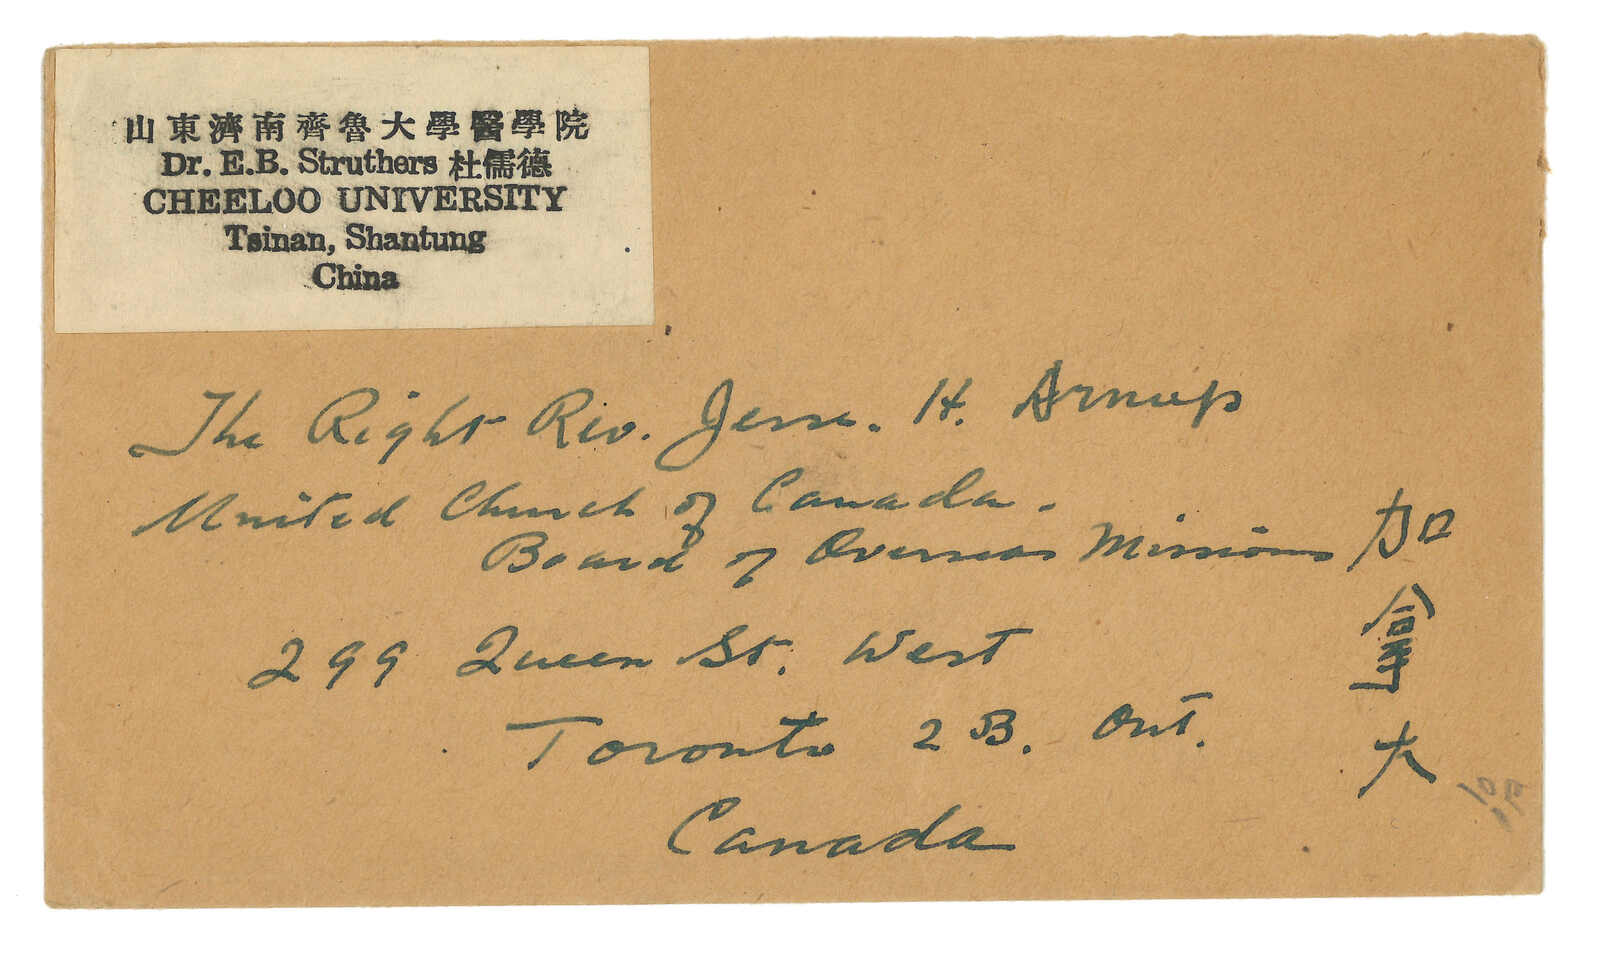 山東濟南齊魯大學醫學院
Dr. E.B. Struthers 杜儒德
CHEELOO UNIVERSITY
Tsinan, Shantung
China
The Right Rev. Jesse. H. Arnup
United Church of Canada.
Board of Overseas Missions
299 Queen St. West
Toronto 2B. Ont.
Canada
加拿大